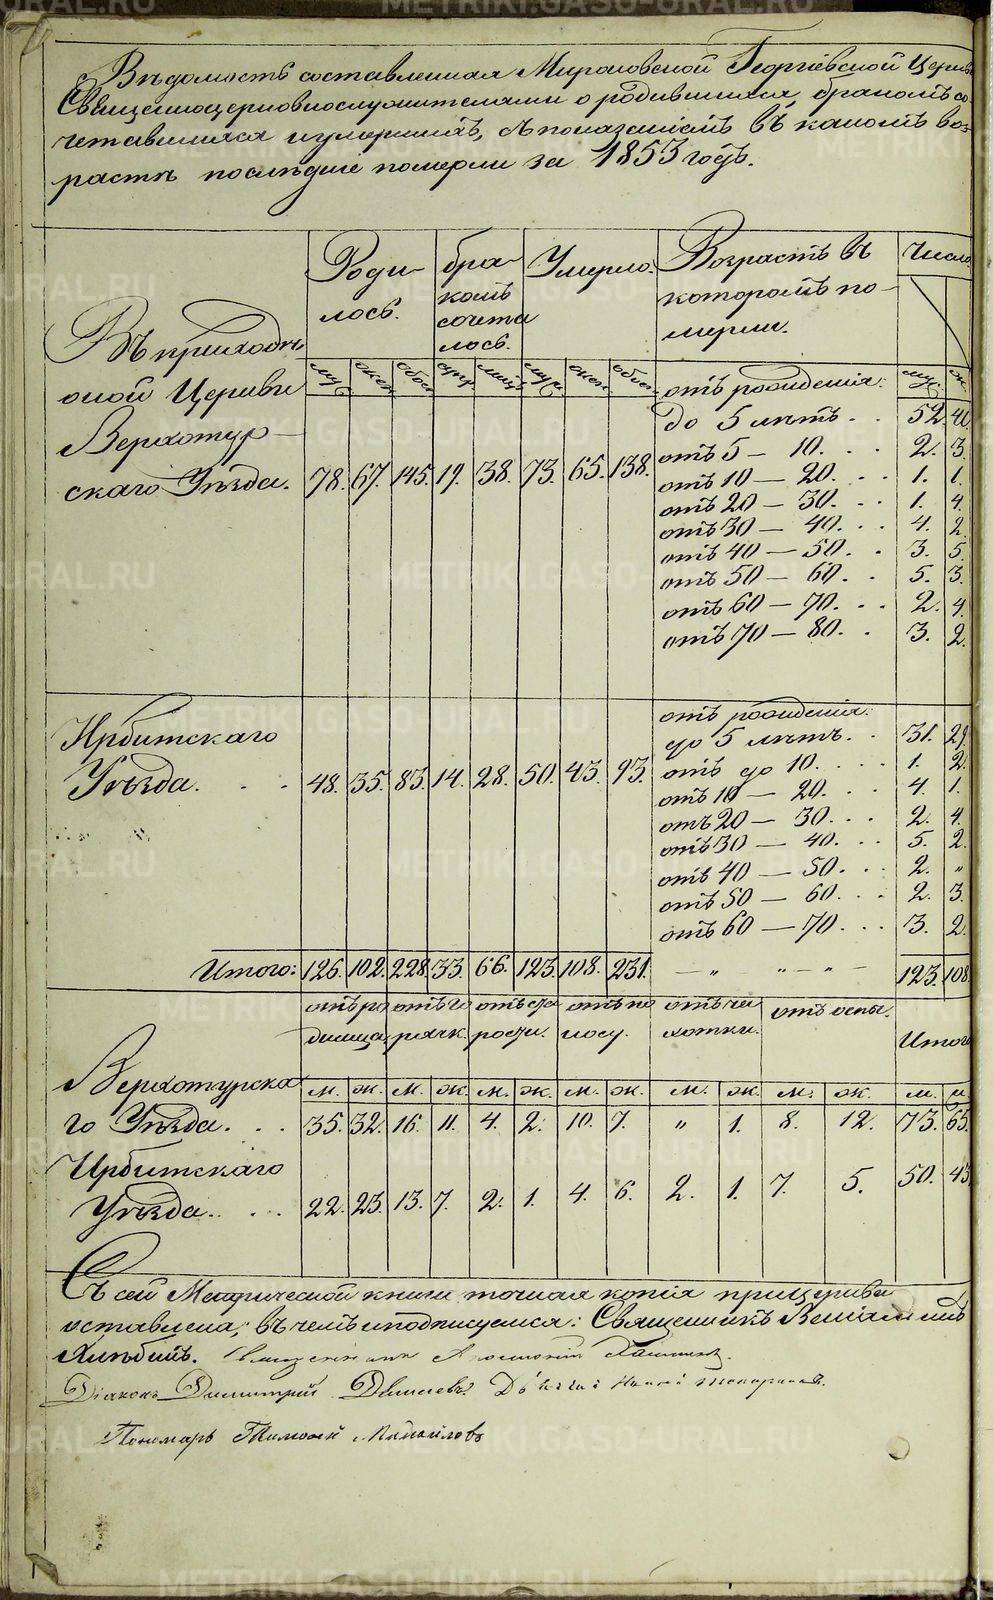 Вѣдомость составленная Мироновской Георгіевской Церкви
Священноцерковнослужителями о родившихся, бракомъ со-
четавшихся и умершихъ, съ показаніемъ въ какомъ воз-
растѣ послѣдніе померли за 1853 годъ.
Роди- лось. бра- комъ сочета лось. Умерло. Возрастъ въ которомъ по- мерли. Число
Въ приходѣ
оной Церкви
Верхотур-
скаго Уѣзда. 78. 67. 145. 19. 38. 73. 65. 138.
муж. жен. обое. муж. жен. обое. муж. ж.
отъ рожденія:
до 5 лѣтъ . . 52. 41.
отъ 5 — 10. . . 2. 3.
отъ 10 — 20. . . 1. 1.
отъ 20 — 30. . . 1. 4.
отъ 30 — 40. . . 4. 2.
отъ 40 — 50. . 3. 5.
отъ 50 — 60. . . 5. 3.
отъ 60 — 70. . . 2. 4.
отъ 70 — 80. . 3. 2.
Ирбитскаго
Уѣзда. . . 48. 35. 83. 14. 28. 50. 43. 93.
отъ рожденія:
до 5 лѣтъ. . 31. 29.
отъ до 10. . . . 1. 2.
отъ 10 — 20. . . 4. 1.
отъ 20 — 30. . . 2. 4.
отъ 30 — 40. . . 5. 2.
отъ 40 — 50. . . 2. „
отъ 50 — 60. . . 2. 3.
отъ 60 — 70. . . 3. 2.
Итого: 126. 102. 228. 33. 66. 123. 108. 231. — „ „ — „ — 123. 108.
отъ ро димца отъ го рячк. отъ ста рости. отъ по носу. отъ ча хотки. отъ оспы. Итого
м. ж. м. ж. м. ж. м. ж. м. ж. м. ж. м. ж.
Верхотурска
го Уѣзда. . . 35. 32. 16. 11. 4. 2. 10. 7. „ 1. 8. 12. 73. 65.
Ирбитскаго
Уѣзда. . . . 22. 23. 13. 7. 2. 1. 4. 6. 2. 1. 7. 5. 50. 43.
Съ сей Метрической книги точная копія при церкви
оставлена; въ чемъ и подписуемся: Священникъ Веніаминъ
Хлѣбинъ. Священникъ
Діаконъ Димитрій
Пономарь Тимофей Михайловъ
METRIKI.GASO-URAL.RU